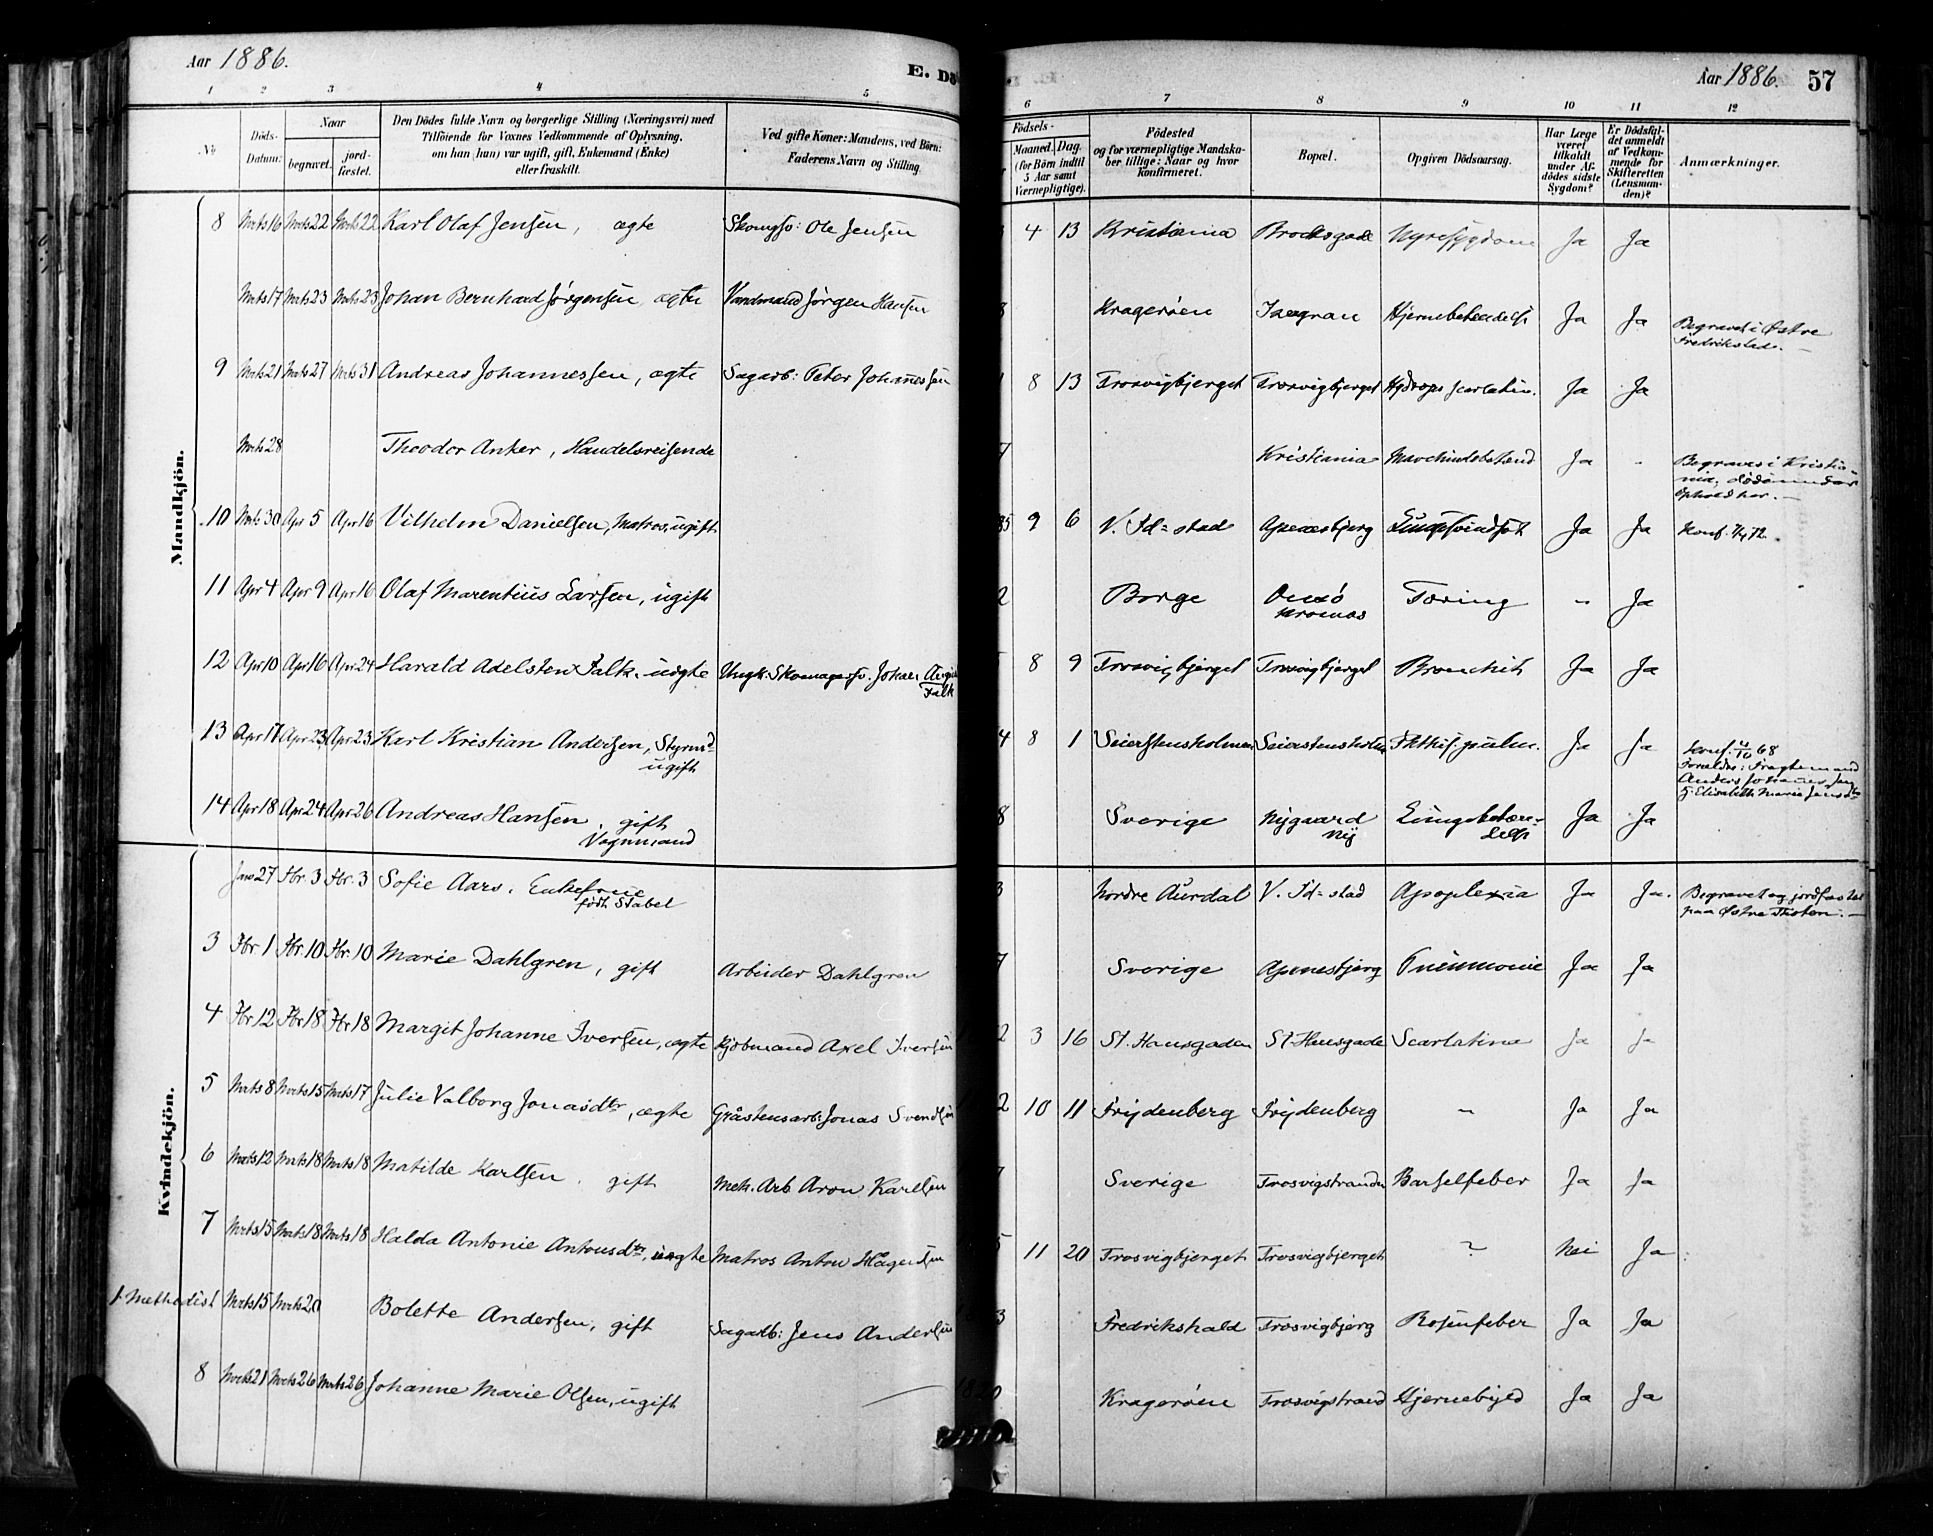 Aar 1886.
E. Dö
Aar 1886. 57
1 2 3 4 5 6 7 8 9 10 11 12
№
Döds-Datum:
Naar
begravet.
jord-fæstet.
Den Dödes fulde Navn og borgerlige Stilling (Næringsvei) med
Tilföiende for Voxnes Vedkommende af Oplysning,
om han (hun) var ugift, gift, Enkemand (Enke)
eller fraskilt.
Ved gifte Koner: Mandens, ved Börn:
Faderens Navn og Stilling.
Födsels-
Maaned. Dag.
(for Börn indtil
5 Aar samt
Værnepligtige).
Födested
og for værnepligtige Mandska-
ber tillige: Naar og hvor
Konfirmeret.
Bopæl.
Opgiven Dödsaarsag.
Har Læge
været
tilkaldt
under Af-
dödes sidste
Sygdom?
Er Dödsfal-
det anmeldt
af Vedkom-
mende for
Skifteretten
(Lensman-
den)?
Anmærkninger.
Mandkjön.
8 Mrts 16 Mrts 22 Mrts 22 Karl Olaf Jensen, ægte Ole Jensen 4 13 Kristiania Brochsgade Nyresygdom Ja Ja
Mrts 17 Mrts 23 Mrts 23 Johan Bernhard Jørgensen, ægte Vandmand Jørgen Hansen Kragerøen Hjernebetændels Ja Ja Begravet i Østre
Fredrikstad. —
9 Mrts 21 Mrts 27 Mrts 31 Andreas Johannessen, ægte Sagarb: Peter Johannessen 8 13 Trosvigbjerget Trosvigbjerget Hydrops scarlatin. Ja Ja
Mrts 28 Theodor Anker, Handelsreisende Kristiania Ja - Begraves i Kristia-
nia, døde under
Ophold her. —
10 Mrts 30 Apr 5 Apr 16 Vilhelm Danielsen, Matros, ugift 35 9 6 V. Fd=stad Apenesbjerg Lungesvindsot Ja Ja Konf. 72.
11 Apr 4 Apr 9 Apr 10 Olaf Marentius Larsen, ugift 2 Borge Onsø
Tæring - Ja
12 Apr 10 Apr 16 Apr 24 Harald Adelsten Falk, uægte Ungk: Skomagersv. Johan
Falk 8 9 Trosvigbjerget Trosvigbjerget Bronchit Ja Ja
13 Apr 17 Apr 23 Apr 23 Karl Kristian Andersen, Styrmd
ugift 4 8 1 Seierstensholmen Seierstensholm Phthis. pulm. Ja Ja Konf. 4/10 68
Forældre: Fragtemand
Anders Johannessen
& Elisabeth Marie Jensdtr
14 Apr 18 Apr 24 Apr 26 Andreas Hansen, gift
Vognmand 8 Sverige Nygaard
Ny Lungebetæn-
dels Ja Ja
Kvindekjön.
Jan 27 Fbr. 3 Fbr. 3 Sofie Aars, Enkefrue
født Stabel 3 Nordre Aurdal V. Fd=stad Apoplexia Ja Ja. Begravet og jordfæstet
paa Østre Kirken. —
3 Fbr. 1 Fbr. 10 Fbr. 10 Marie Dahlgren, gift Arbeider Dahlgren 7 Sverige Apenesbjerg Pneumonie Ja Ja
4 Fbr 12 Fbr 18 Fbr 18 Margit Johanne Iversen, ægte Kjøbmand Axel Iversen 2 3 16 St. Hansgaden St. Hansgade Scarlatina Ja Ja
5 Mrts 8 Mrts 15 Mrts 17 Julie Valborg Jonasdtr, ægte Gråstensarb: Jonas Svendsen 2 10 11 Frydenberg Frydenberg - Ja Ja
6 Mrts 12 Mrts 18 Mrts 18 Matilde Karlsen, gift Mek. Arb Aron Karlsen 7 Sverige Trosvigstranden Barselfeber Ja Ja
7 Mrts 15 Mrts 18 Mrts 18 Halda Antonie Antonsdtr, uægte Matros Anton Hågensen 5 11 20 Trosvigbjerget Trosvigbjerget ? Nei Ja
1 Methodist Mrts 15 Mrts 20 Bolette Andersen, gift Sagarb: Jens Andersen 3 Fredrikshald Trosvigbjerg Rosenfeber Ja Ja
8 Mrts 21 Mrts 26 Mrts 26 Johanne Marie Olsen, ugift — Kragerøen Trosvigstrand Hjernebyld Ja Ja